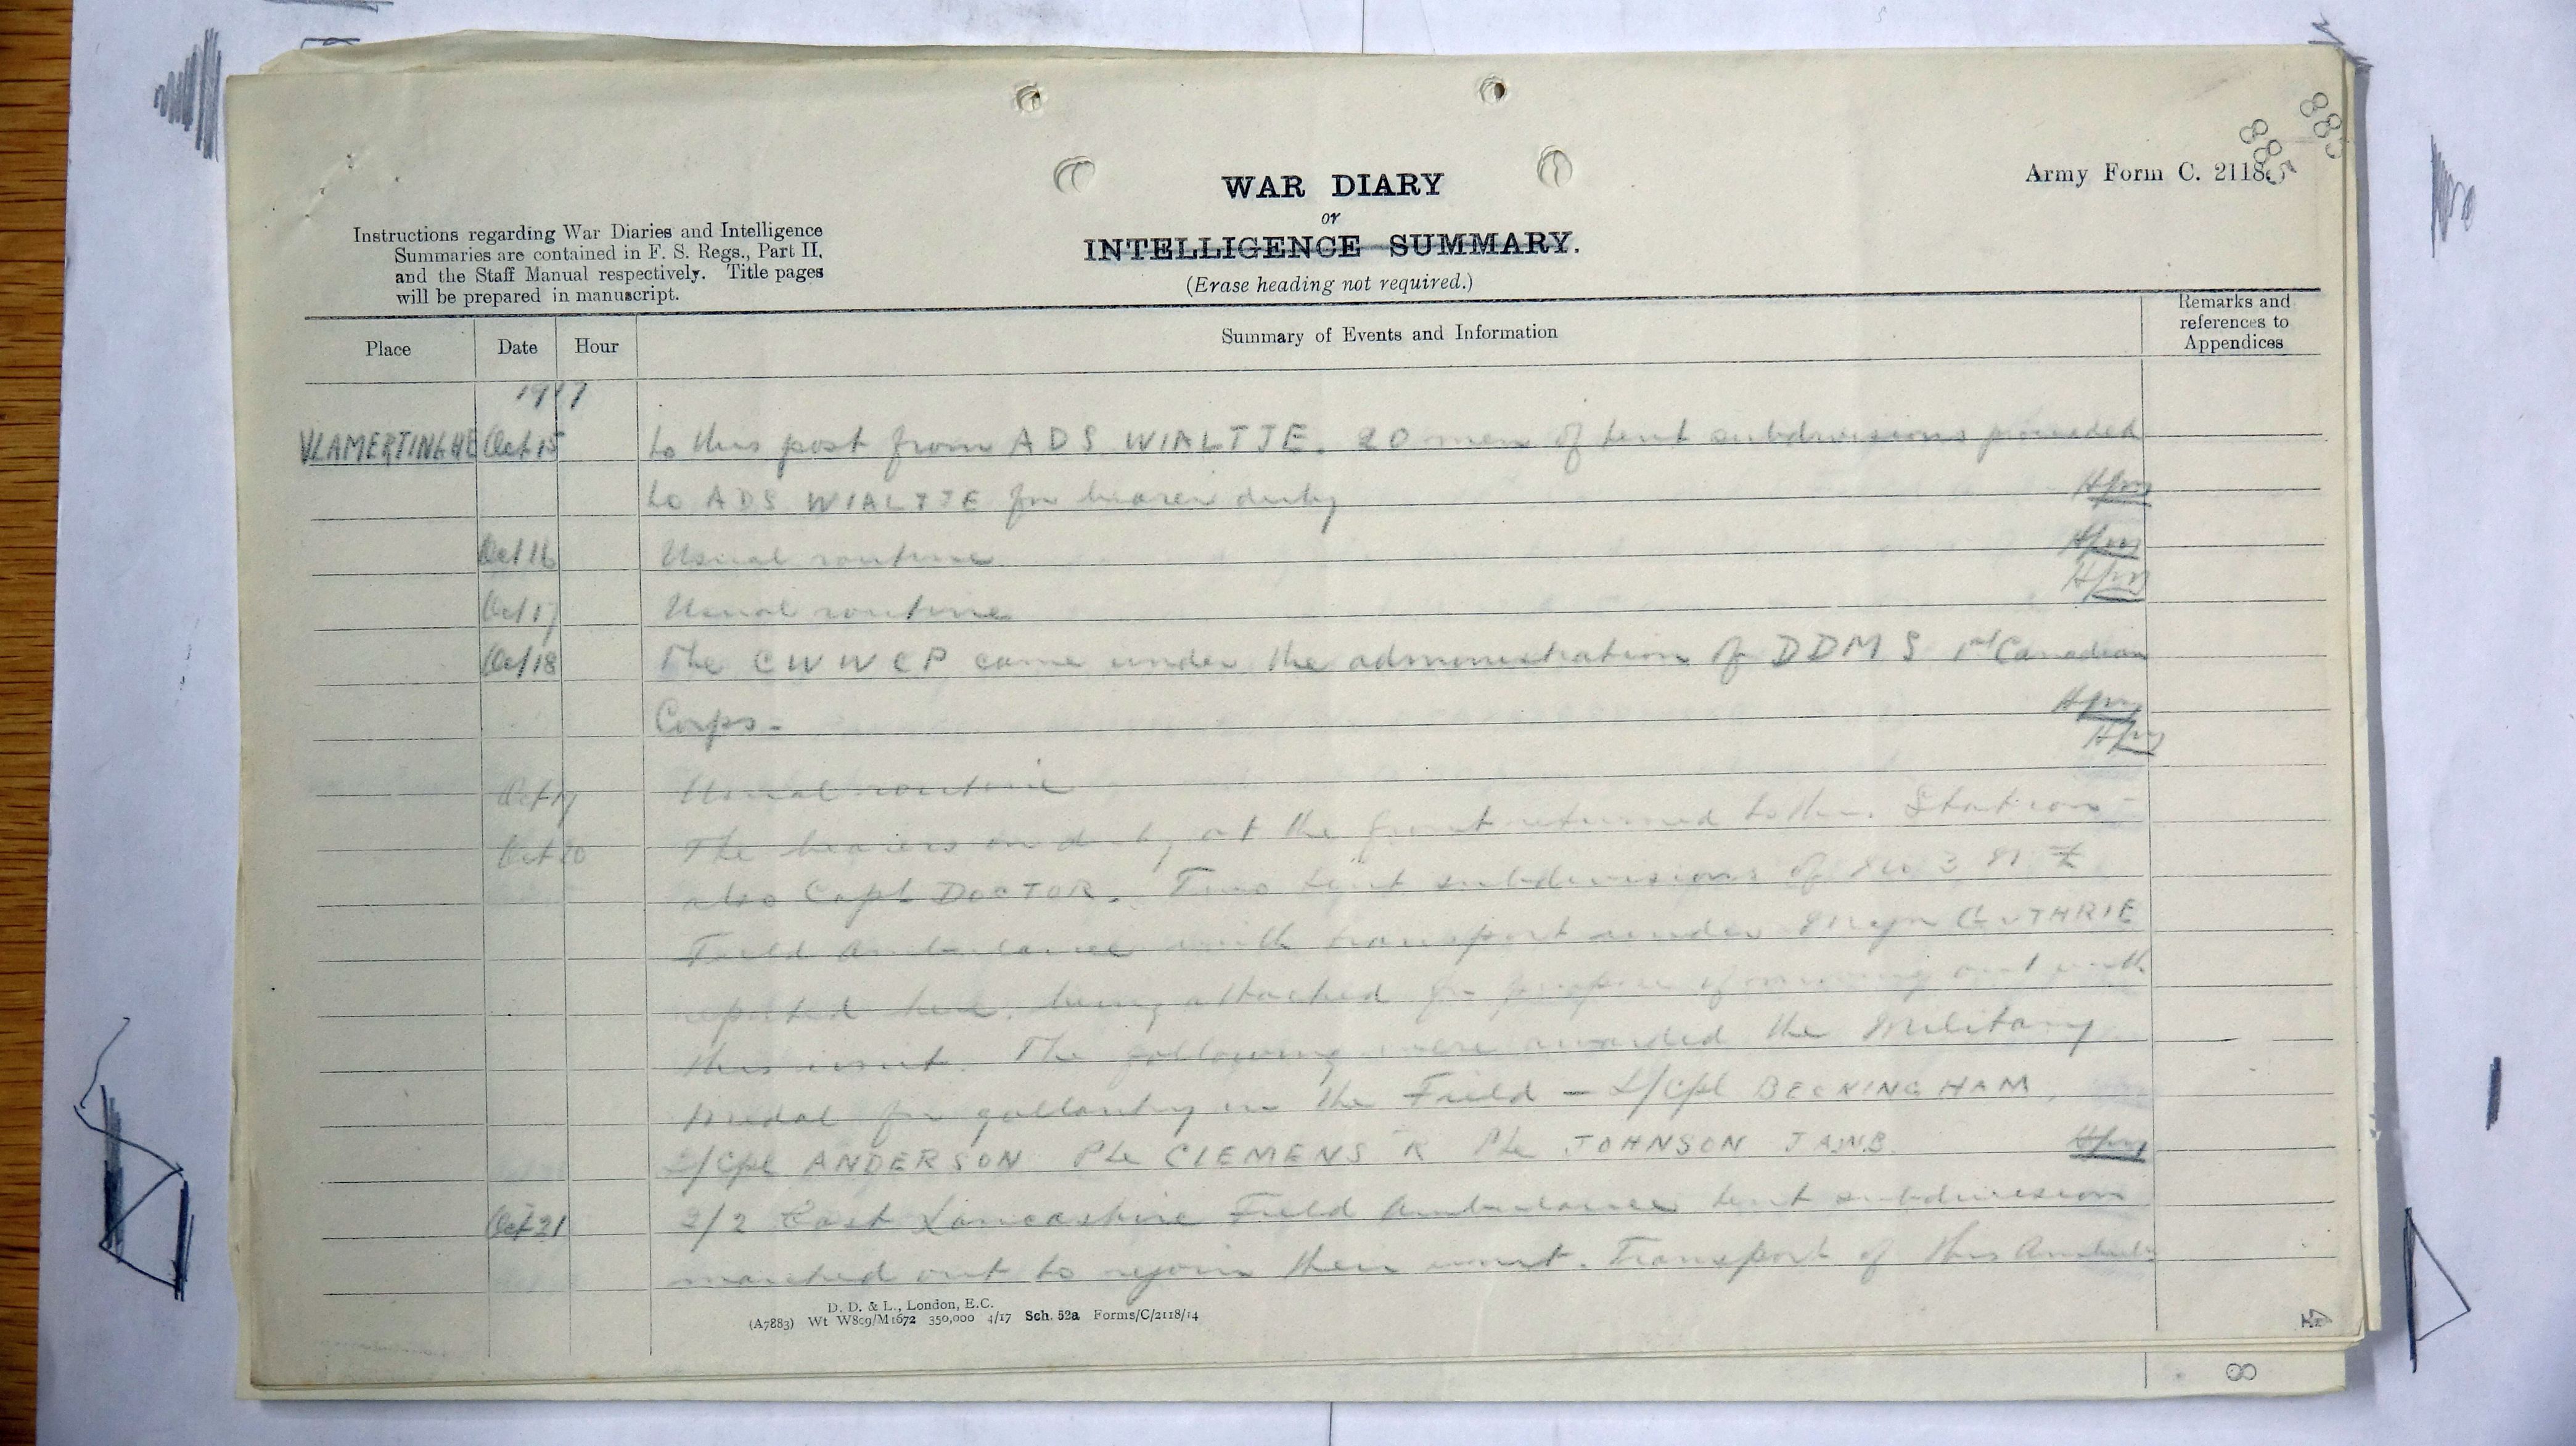 885
885
Army Form C. 2118.
WAR DIARY
or
INTELLIGENCE SUMMARY.
(Erase heading not required.)
Instructions regarding War Diaries and Intelligence
Summaries are contained in F. S. Regs., Part II,
and the Staff Manual respectively. Title pages
will be prepared in manuscript.
Place Date Hour Summary of Events and Information Remarks and
references to
Appendices
1917
VLAMERTINGHE Oct 15 to this post from ADS WIALTJE. 20 men of tent subdivisions proceeded
to ADS WIALTJE for bearer duty
Oct 16 Usual routine
Oct 17 Usual routine
Oct 18 The CWWCP came under the administration of DDMS 1st Canadian
Corps -
Oct 19 Usual routine
Oct 20 The bearers on duty at the front returned to the Station -
also Capt DOCTOR. Two tent subdivisions of
Field Ambulance with transport under Major GUTHRIE
reported here, being attached for purpose of moving out with
this unit. The following were awarded the Military
Medal for gallantry in the Field - L/Cpl BECKINGHAM,
L/Cpl ANDERSON Pte CLEMENS K Pte JOHNSON J.A.W.B.
Oct 21 2/2 East Lancashire Field Ambulance tent subdivision
marched out to rejoin their unit. Transport of this
D. D. & L., London, E.C.
(A7883) Wt W809/M1672 350,000 4/17 Sch. 52a Forms/C/2118/14
4
8